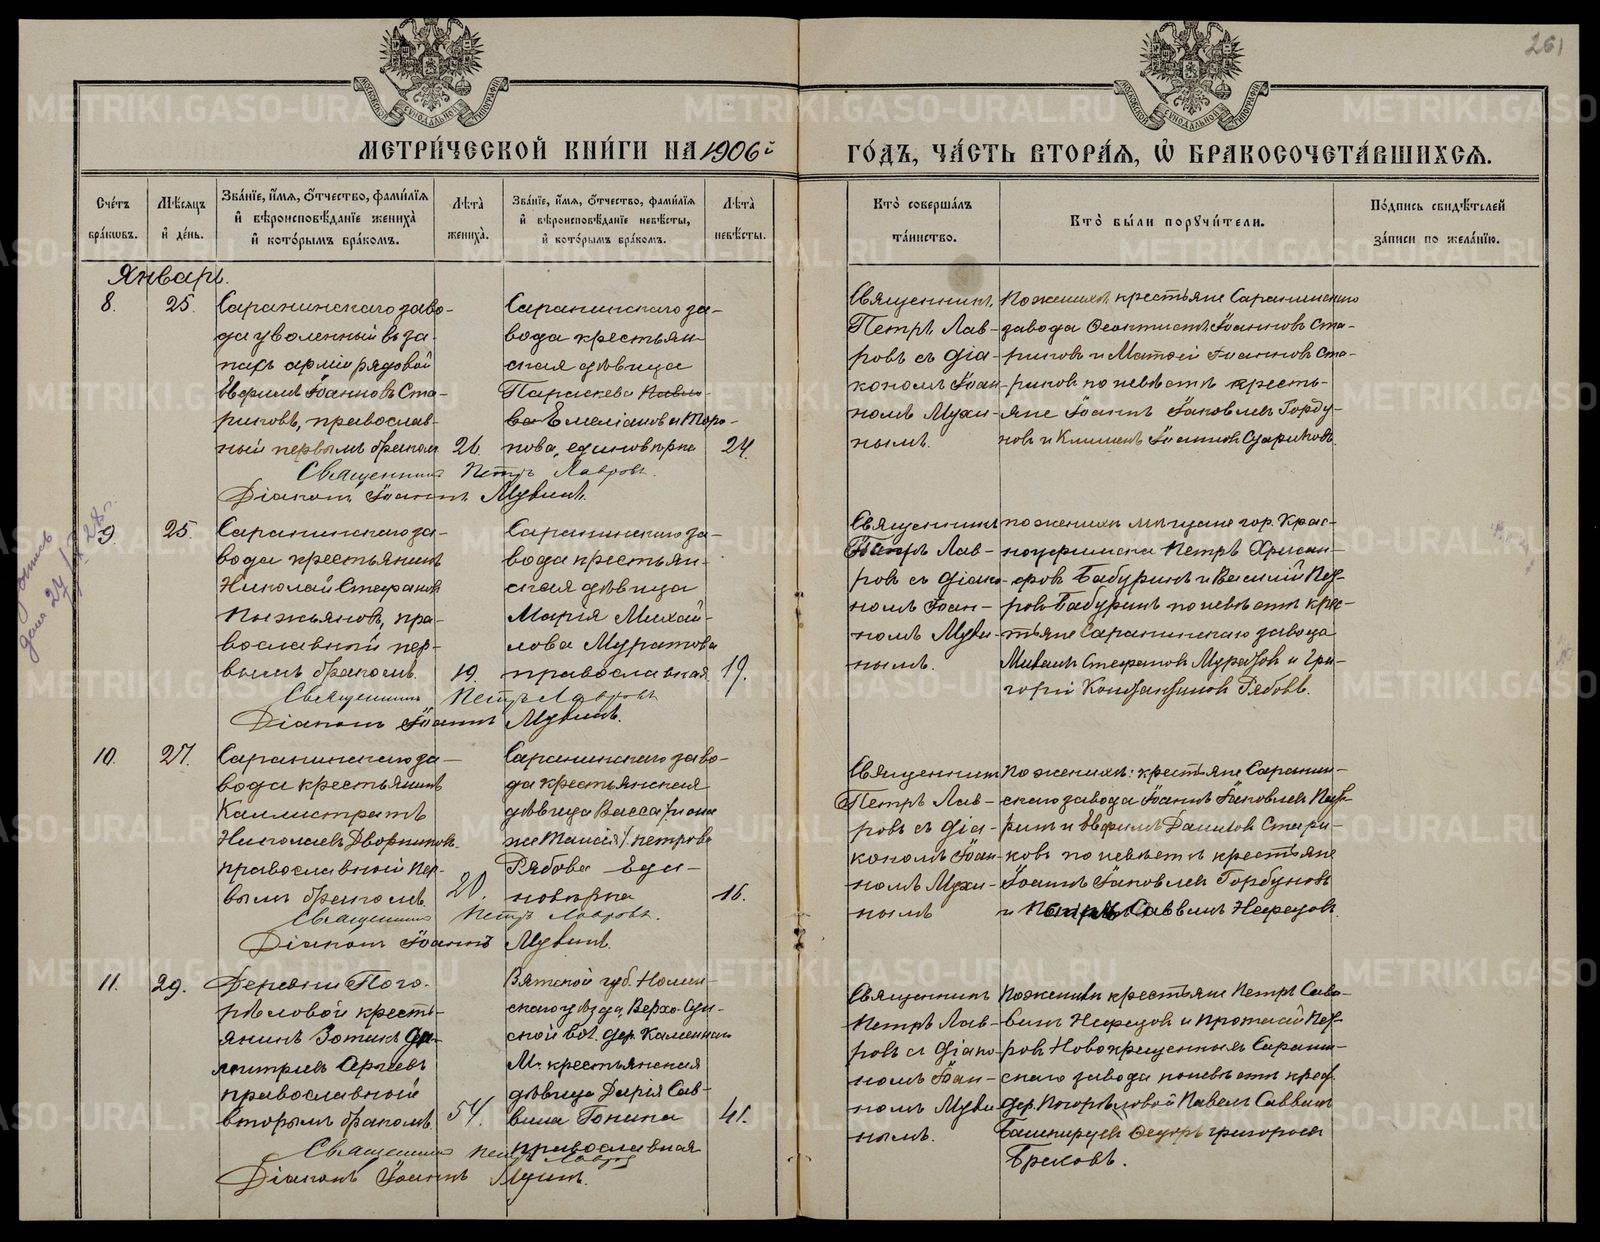 261
МЕТРИ́ЧЕСКОЙ КНИ́ГИ НА 1906й
ГО́ДЪ, ЧА́СТЬ ВТОРА́Я, Ѡ БРАКОСОЧЕТА́ВШИХСЯ.
Сче́тъ бра́кѡвъ.
Мѣ́сяцъ и҆ де́нь.
Зва́нїе, и҆́мя, ѻ҆́тчество, фами́лїя
и҆ вѣроисповѣ́данїе женихà
и҆ кото́рымъ бра́комъ.
Лѣ́тà женихà.
Зва́нїе, и҆́мя, ѻ҆́тчество, фами́лїя
и҆ вѣроисповѣ́данїе невѣ́сты,
и҆ кото́рымъ бра́комъ.
Лѣ́тà невѣ́сты.
Ктò соверша́лъ
та́инство.
Ктò бы́ли порꙋчи́тели.
По́дпись свидѣ́телей
за́писи по жела́нїю.
Январь.
8. 25.
Саранинскаго заво-
да уволенный въ за-
пасъ арміи рядовой
Евфимъ Іоанновъ Ста-
риковъ, православ-
ный первымъ бракомъ 26.
Саранинскаго за-
вода крестьян-
ская дѣвица
Параскева Павло-
ва Емеліанова Торо-
пова, единовѣрка 24.
Священникъ
Петръ Лав-
ровъ съ діа-
кономъ Іоан-
номъ Мухи-
нымъ.
По женихѣ крестьяне Саранинскаго
завода Феоктистъ Іоанновъ Ста-
риковъ и Матѳей Іоанновъ Ста-
риковъ по невѣстѣ кресть-
яне Іоаннъ Іаковлевъ Горбу-
новъ и Климентъ Іоанновъ Стариковъ.
Священникъ Петръ Лавровъ.
Діаконъ Іоаннъ Мухинъ.
9. 25.
Саранинскаго за-
вода крестьянинъ
Николай Стефановъ
Пыжьяновъ, пра-
вославный пер-
вымъ бракомъ. 19.
Саранинскаго за-
вода крестьян-
ская дѣвица
Марія Михай-
лова Муратова
православная 19.
Священникъ
Петръ Лав-
ровъ съ діако-
номъ Іоан-
номъ Мухи-
нымъ.
по женихѣ мѣщане гор. Крас-
ноуфимска Петръ Хрисан-
фовъ Бабуринъ и Василій Пет-
ровъ Бабуринъ по невѣстѣ крес-
тьяне Саранинскаго завода
Михаилъ Стефановъ Муратовъ и Гри-
горій Константиновъ Рябовъ.
Священникъ Петръ Лавровъ
Діаконъ Іоаннъ Мухинъ.
10. 27.
Саранинскаго за-
вода крестьянинъ
Каллистратъ
Николаевъ Дворниковъ
православный пер-
вымъ бракомъ. 20.
Саранинскаго заво-
да крестьянская
дѣвица Васса (она
же Таисія) Петрова
Рябова Еди-
новѣрка 16.
Священникъ
Петръ Лав-
ровъ съ діа-
кономъ Іоан-
номъ Мухи-
нымъ
По женихѣ: крестьяне Саранин-
скаго завода Іоаннъ Іаковлевъ
и Евфимъ Даниловъ Стари-
ковъ по невѣстѣ крестьяне
Іоаннъ Іаковлевъ Горбуновъ
и Петръ Саввинъ Нефедовъ.
Священникъ Петръ Лавровъ.
Діаконъ Іоаннъ Мухинъ.
11. 29.
Деревни Пого-
рѣловой кресть-
янинъ Зотикъ Ди-
митріевъ
православный
вторымъ бракомъ. 54.
Вятской губ. Нолин-
скаго уѣзда, Верхо-Сун-
ской вол. дер.
М. крестьянская
дѣвица Дарія Сав-
вина Гонина
православная 41.
Священникъ
Петръ Лав-
ровъ съ діако-
номъ Іоан-
номъ Мухи-
нымъ.
По женихѣ крестьяне Петръ Сав-
винъ Нефедовъ и Протасій Пет-
ровъ Новокрещенныхъ Саранин-
скаго завода по невѣстѣ крест.
дер. Погорѣловой Павелъ Саввинъ
Ѳедоръ Григорьевъ
Священникъ Петръ Лавровъ
Діаконъ Іоаннъ Мухинъ.
METRIKI.GASO-URAL.RU